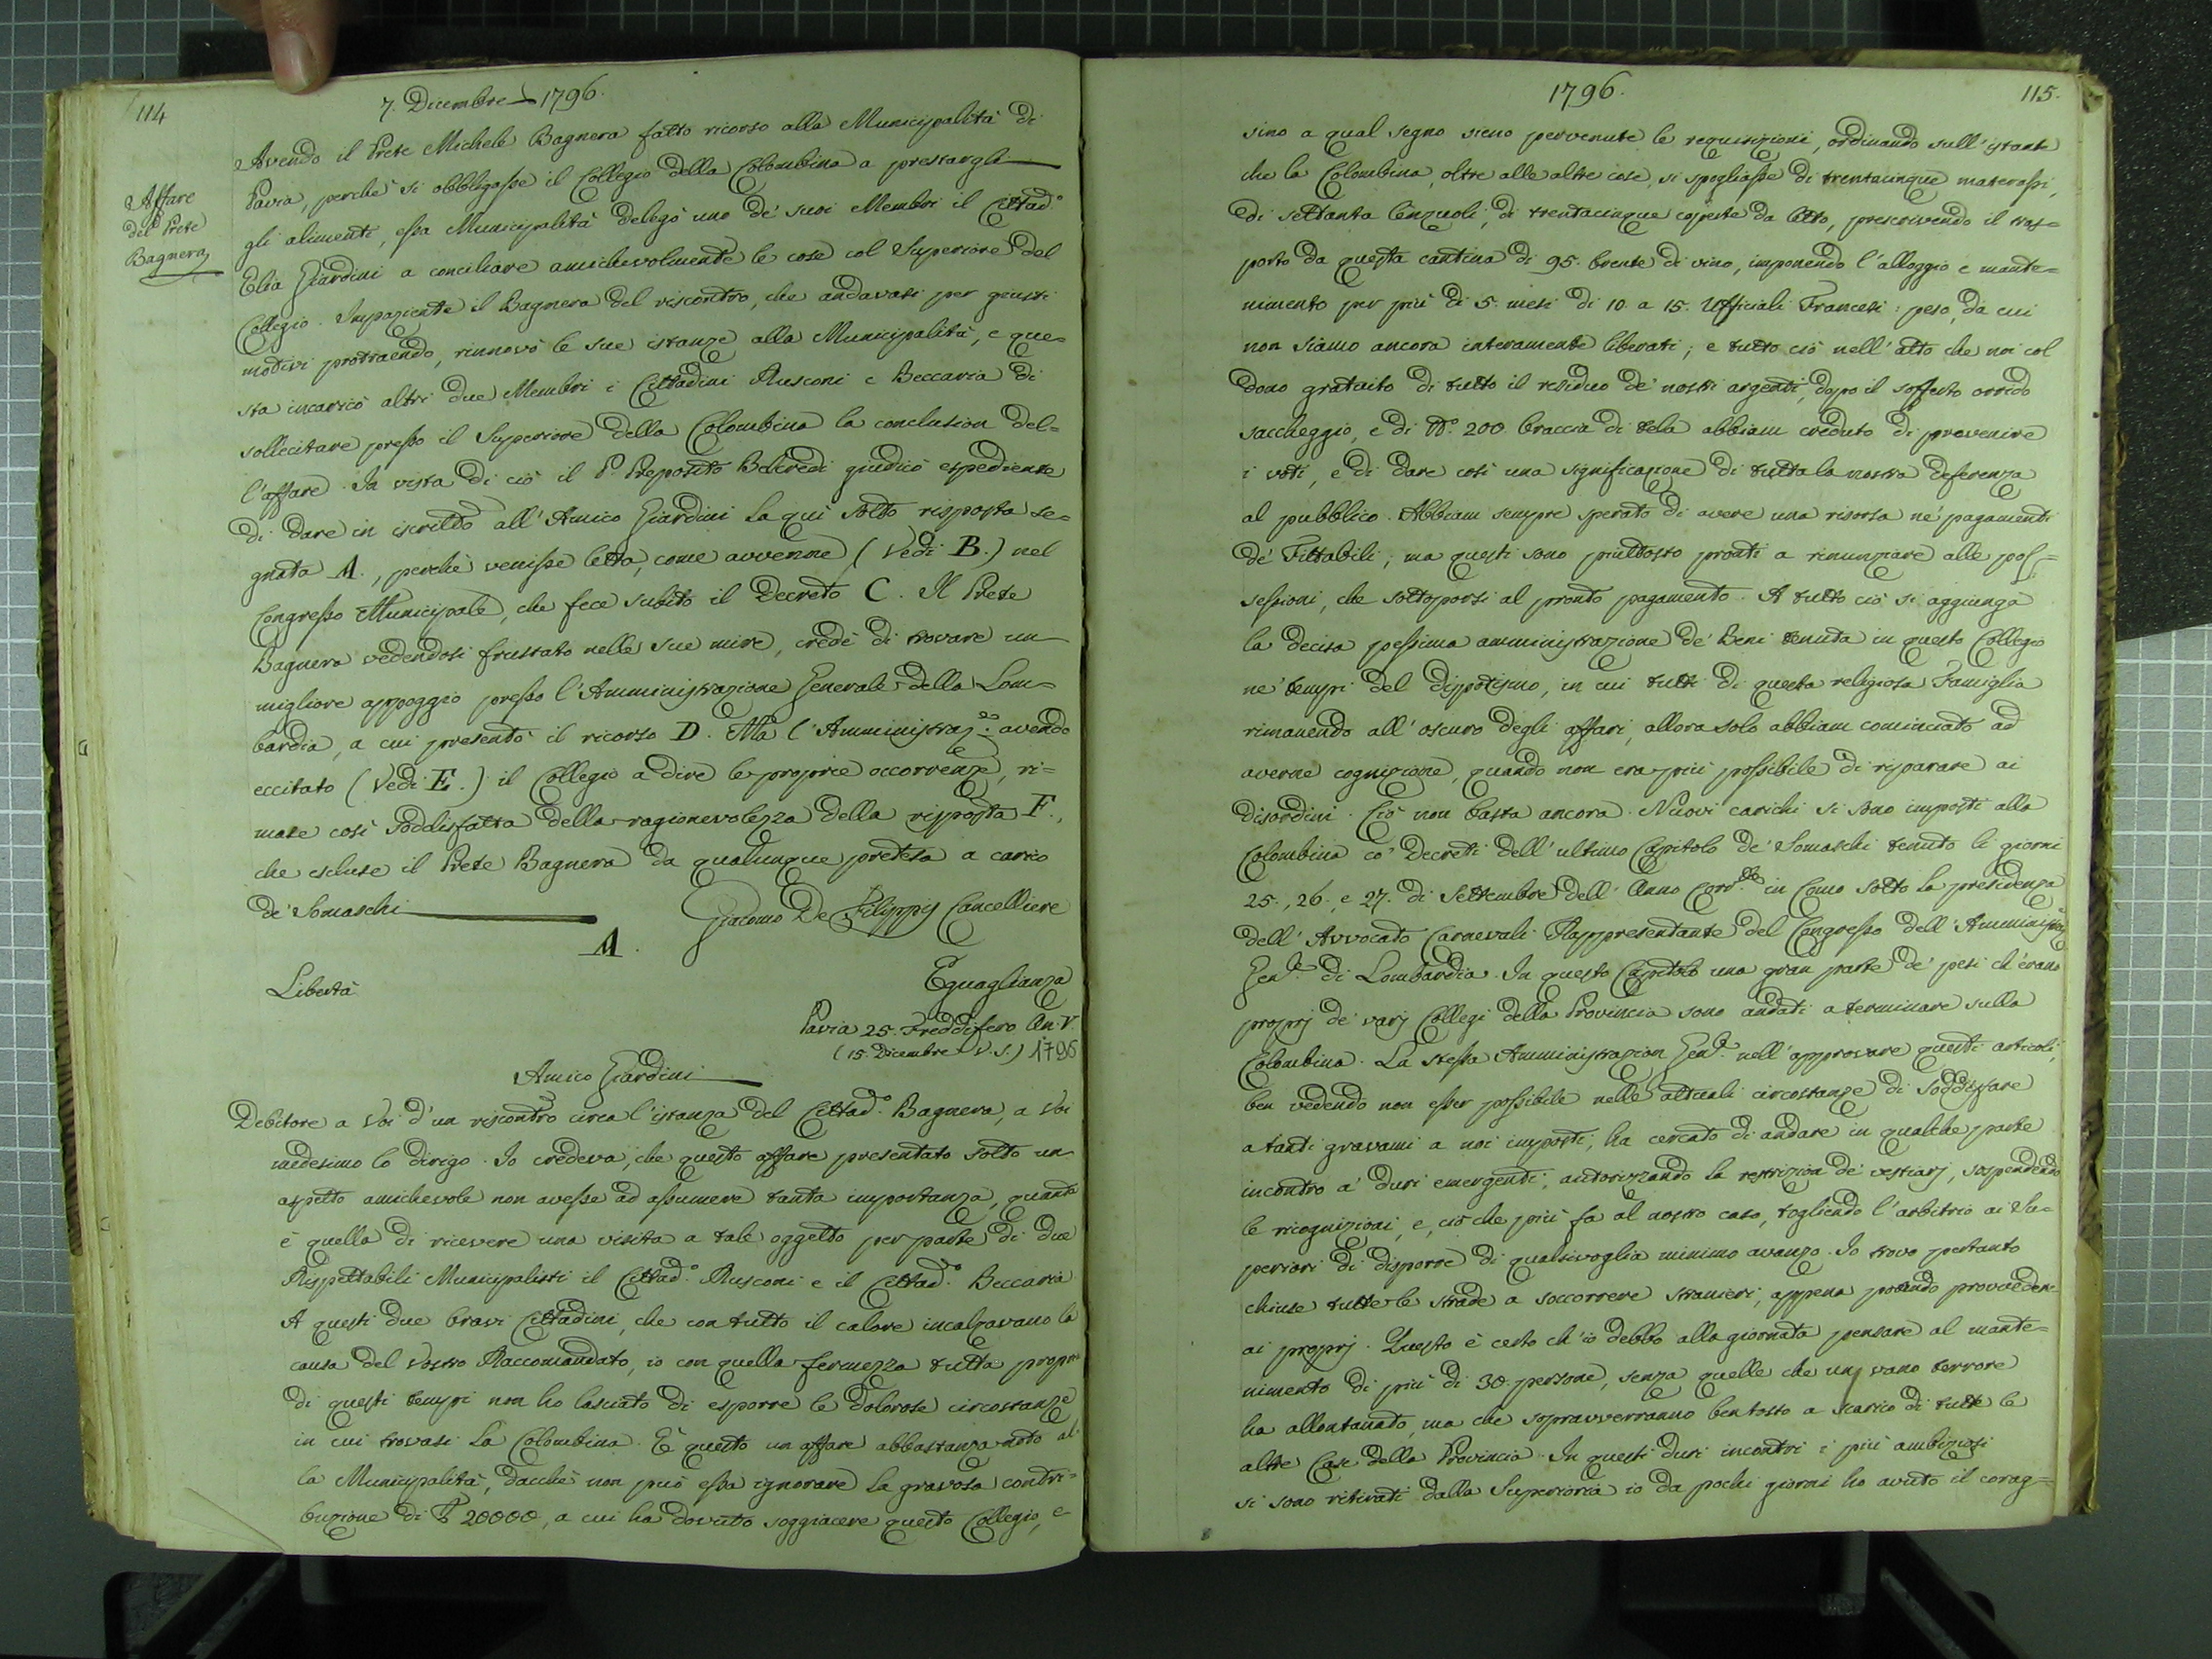 114
7. Dicembre 1796.
Affare
del Prete
Bagnera
Avendo il Prete Michele Bagnera fatto ricorso alla Municipalità di
Pavia, perchè si obbligasse il Collegio della Colombina a prestargli
gli alimenti, essa Municipalità delegò uno de' suoi Membri il Cittad.o
Elia Giardini a conciliare amichevolmente le cose col Superiore del
Collegio. Impaziente il Bagnera del riscontro, che andavasi per giusti
motivi protraendo, rinnovò le sue istanze alla Municipalità, e que=
sta incaricò altri due Membri i Cittadini Rusconi e Beccaria di
sollicitare presso il Superiore della Colombina la conclusion del=
l'affare. In vista di ciò il P. Preposito Belcredi giudicò espediente
di dare in iscritto all'Amico Giardini la quì sotto risposta se=
gnata A., perchè venisse letta, come avvenne (Vedi B.) nel
Congresso Municipale, che fece subito il Decreto C. Il Prete
Bagnera vedendosi frustrato nelle sue mire, credè di trovare un
migliore appoggio presso l'Amministrazione Generale della Lom=
bardia, a cui presentò il ricorso D. Ma l'Amministraz.e avendo
eccitato (Vedi E.) il Collegio a dire le proprie occorrenze, ri=
mase così soddisfatta della ragionevolezza della risposta F.,
che escluse il Prete Bagnera da qualunque pretesa a carico
de' Somaschi
Giacomo De Filippis Cancelliere
A.
Libertà
Eguaglianza
Pavia 25. Freddifero An. V.
(15. Dicembre V.S.) 1796
Amico Giardini
Debitore a Voi d'un riscontro circa l'istanza del Cittad.o Bagnera, a Voi
medesimo lo dirigo. Io credeva, che questo affare presentato sotto un
aspetto amichevole non avesse ad assumere tanta importanza, quanta
è quella di ricevere una visita a tale oggetto per parte di due
Rispettabili Municipalisti il Cittad.o Rusconi e il Cittad.o Beccaria
A questi due bravi Cittadini, che con tutto il calore incalzavano la
causa del Vostro Raccomandato, io con quella fermezza tutta propria
di questi tempi non ho lasciato di esporre le dolorose circostanze,
in cui trovasi la Colombina. È questo un affare abbastanza noto al=
la Municipalità, dacchè non può essa ignorare la gravosa contri=
buzione di 20000, a cui ha dovuto soggiacere questo Collegio, e
1796.
115.
sino a qual segno sieno pervenute le requisizioni, ordinando sull'istante
che la Colombina, oltre alle altre cose, si spogliasse di trentacinque materassi,
di settanta lenzuoli, di trentacinque coperte da letto, prescrivendo il tras=
porto da questa cantina di 95. brente di vino, imponendo l'alloggio e mante=
nimento per più di 5. mesi di 10. a 15. Ufficiali Francesi: peso, da cui
non siamo ancora interamente liberati; e tutto ciò nell'atto che noi col
dono gratuito di tutto il residuo de' nostri argenti, dopo il sofferto orrido
saccheggio, e di N.o 200 braccia di tela abbiam creduto di prevenire
i voti, e di dare così una significazione di tutta la nostra deferenza
al pubblico. Abbiam sempre sperato di avere una risorsa ne' pagamenti
de' Fittabili; ma questi sono piuttosto pronti a rinunziare alle pos=
sessioni, che sottoporsi al pronto pagamento. A tutto ciò si aggiunga
la decisa pessima amministrazione de' Beni tenuta in questo Collegio
ne' tempi del dispotismo, in cui tutti di questa religiosa Famiglia
rimanendo all'oscuro degli affari, allora solo abbiam cominciato ad
averne cognizione, quando non era più possibile di riparare ai
disordini. Ciò non basta ancora. Nuovi carichi si sono imposti alla
Colombina co' Decreti dell'ultimo Capitolo de' Somaschi tenuto li giorni
25., 26., e 27. di Settembre dell'Anno in Como sotto la presidenza
dell'Avvocato Carnevali Rappresentante del Congresso dell'Amministraz.
Gen.le di Lombardia. In questo Capitolo una gran parte de' pesi ch'erano
proprj de' varj Collegi della Provincia sono andati a terminare sulla
Colombina. La stessa Amministrazion Gen.le nell'approvare questi articoli,
ben vedendo non esser possibile nelle attuali circostanze di soddisfare
a tanti gravami a noi imposti, ha cercato di andare in qualche parte
incontro a' duri emergenti, autorizzando la restrizion de' vestiarj, sospendendo
le ricognizioni, e, ciò che più fa al nostro caso, togliendo l'arbitrio ai Su=
periori di disporre di qualsivoglia minimo avanzo. Io trovo pertanto
chiuse tutte le strade a soccorrere stranieri, appena potendo provvedere
ai proprj. Questo è certo ch'io debbo alla giornata pensare al mante=
nimento di più di 30. persone, senza quelle che un vano terrore
ha allontanato, ma che sopravverranno bentosto a scarico di tutte le
altre Case della Provincia. In questi duri incontri i più ambiziosi
si sono ritirati dalla Superioria io da pochi giorni ho avuto il corag=